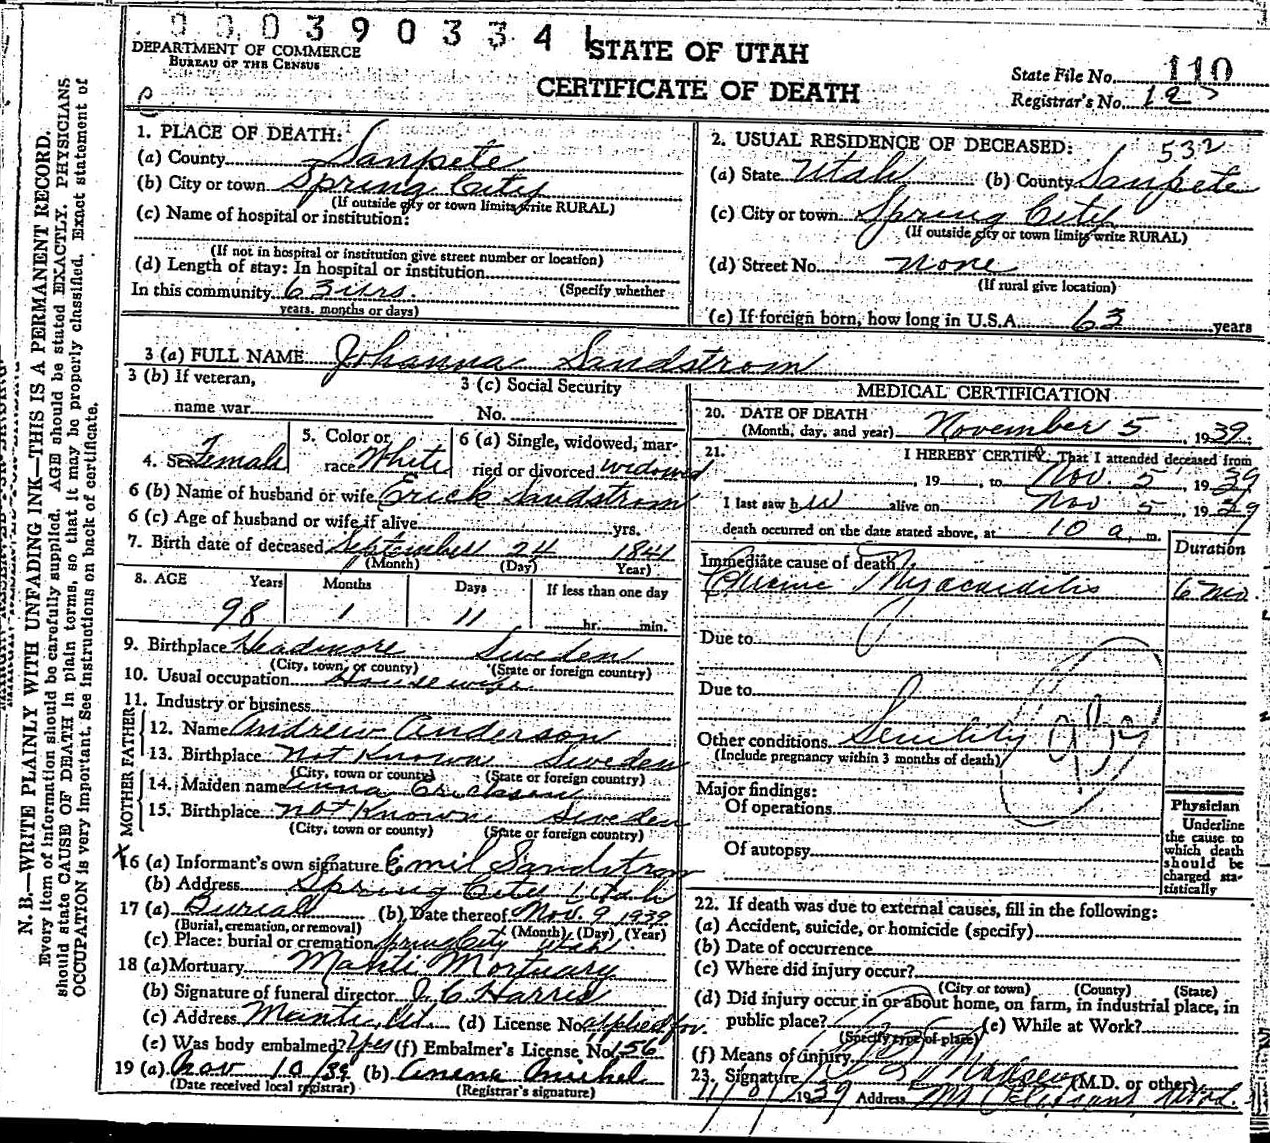 3 9 0 3 3 4
DEPARTMENT OF COMMERCE
BUREAU OF THE CENSUS
STATE OF UTAH
CERTIFICATE OF DEATH
State File No. 110
Registrar's No. 12
1. PLACE OF DEATH:
(a) County Sanpete
(b) City or town Spring City
(If outside city or town limits write RURAL)
(c) Name of hospital or institution:
(If not in hospital or institution give street number or location)
(d) Length of stay: In hospital or institution
In this community 63 yrs. (Specify whether
years, months or days)
2. USUAL RESIDENCE OF DECEASED: 532
(a) State Utah (b) County Sanpete
(c) City or town Spring City
(If outside city or town limits write RURAL)
(d) Street No. None
(If rural give location)
(e) If foreign born, how long in U.S.A. 63 years
3 (a) FULL NAME Johanna Sandstrom
3 (b) If veteran,
name war
3 (c) Social Security
No.
4. Sex Female
5. Color or
race White
6 (a) Single, widowed, mar-
ried or divorced widowed
6 (b) Name of husband or wife Erick Sandstrom
6 (c) Age of husband or wife if alive yrs.
7. Birth date of deceased September 24 1841
(Month) (Day) Year)
8. AGE Years Months Days If less than one day
98 1 11 hr. min.
9. Birthplace Sweden
(City, town, or county) (State or foreign country)
10. Usual occupation Housewife
11. Industry or business
FATHER
12. Name Andrew Anderson
13. Birthplace Not Known Sweden
(City, town or county) (State or foreign country)
MOTHER
14. Maiden name Anna Erickson
15. Birthplace Not Known Sweden
(City, town or county) (State or foreign country)
X16 (a) Informant's own signature Emil Sandstrom
(b) Address Spring City Utah
17 (a) Burial (b) Date thereof Nov. 9 1939
(Burial, cremation, or removal) (Month) (Day) (Year)
(c) Place: burial or cremation Spring City Utah
18 (a) Mortuary Manti Mortuary
(b) Signature of funeral director J. C. Harris
(c) Address Manti, Ut. (d) License No. applied for.
(e) Was body embalmed? Yes (f) Embalmer's License No. 156
19 (a) Nov 10/39 (b)
(Date received local registrar) (Registrar's signature)
MEDICAL CERTIFICATION
20. DATE OF DEATH
(Month, day, and year) November 5, 1939;
21. I HEREBY CERTIFY, That I attended deceased from
, 19 , to Nov. 5, 1939
I last saw her alive on Nov 5, 1939
death occurred on the date stated above, at 10 a. m.
Duration
Immediate cause of death
Chronic Myocarditis 6 mo.
Due to
Due to
Other conditions Senility
(Include pregnancy within 3 months of death)
Major findings:
Of operations
Of autopsy
Physician
Underline
the cause to
which death
should be
charged sta-
tistically
22. If death was due to external causes, fill in the following:
(a) Accident, suicide, or homicide (specify)
(b) Date of occurrence
(c) Where did injury occur?
(City or town) (County) (State)
(d) Did injury occur in or about home, on farm, in industrial place, in
public place? (e) While at Work?
(Specify type of place)
(f) Means of injury
23. Signature (M.D. or other)
1939 Address Mt Pleasant, Utah.
N. B.—WRITE PLAINLY WITH UNFADING INK—THIS IS A PERMANENT RECORD.
Every item of information should be carefully supplied. AGE should be stated EXACTLY. PHYSICIANS
should state CAUSE OF DEATH in plain terms, so that it may be properly classified. Exact statement of
OCCUPATION is very important. See instructions on back of certificate.